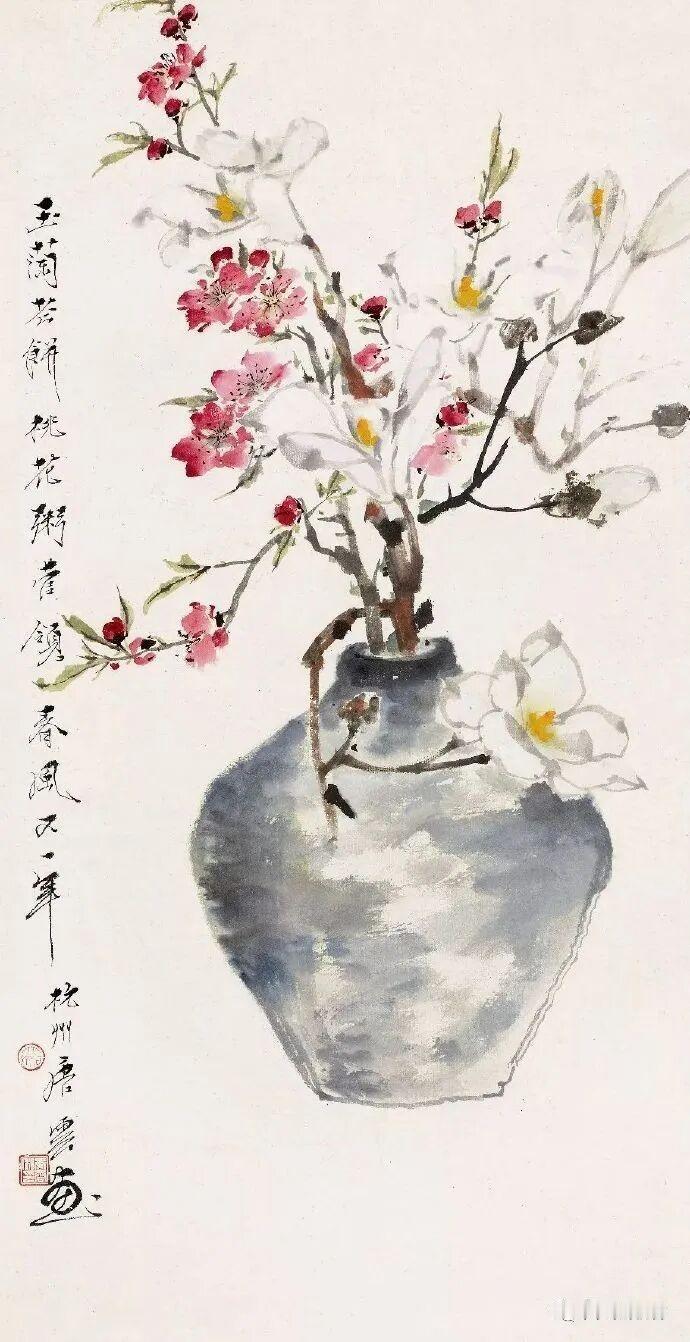 玉蘭花餅桃花粥管領春風又一年
杭州唐雲畫